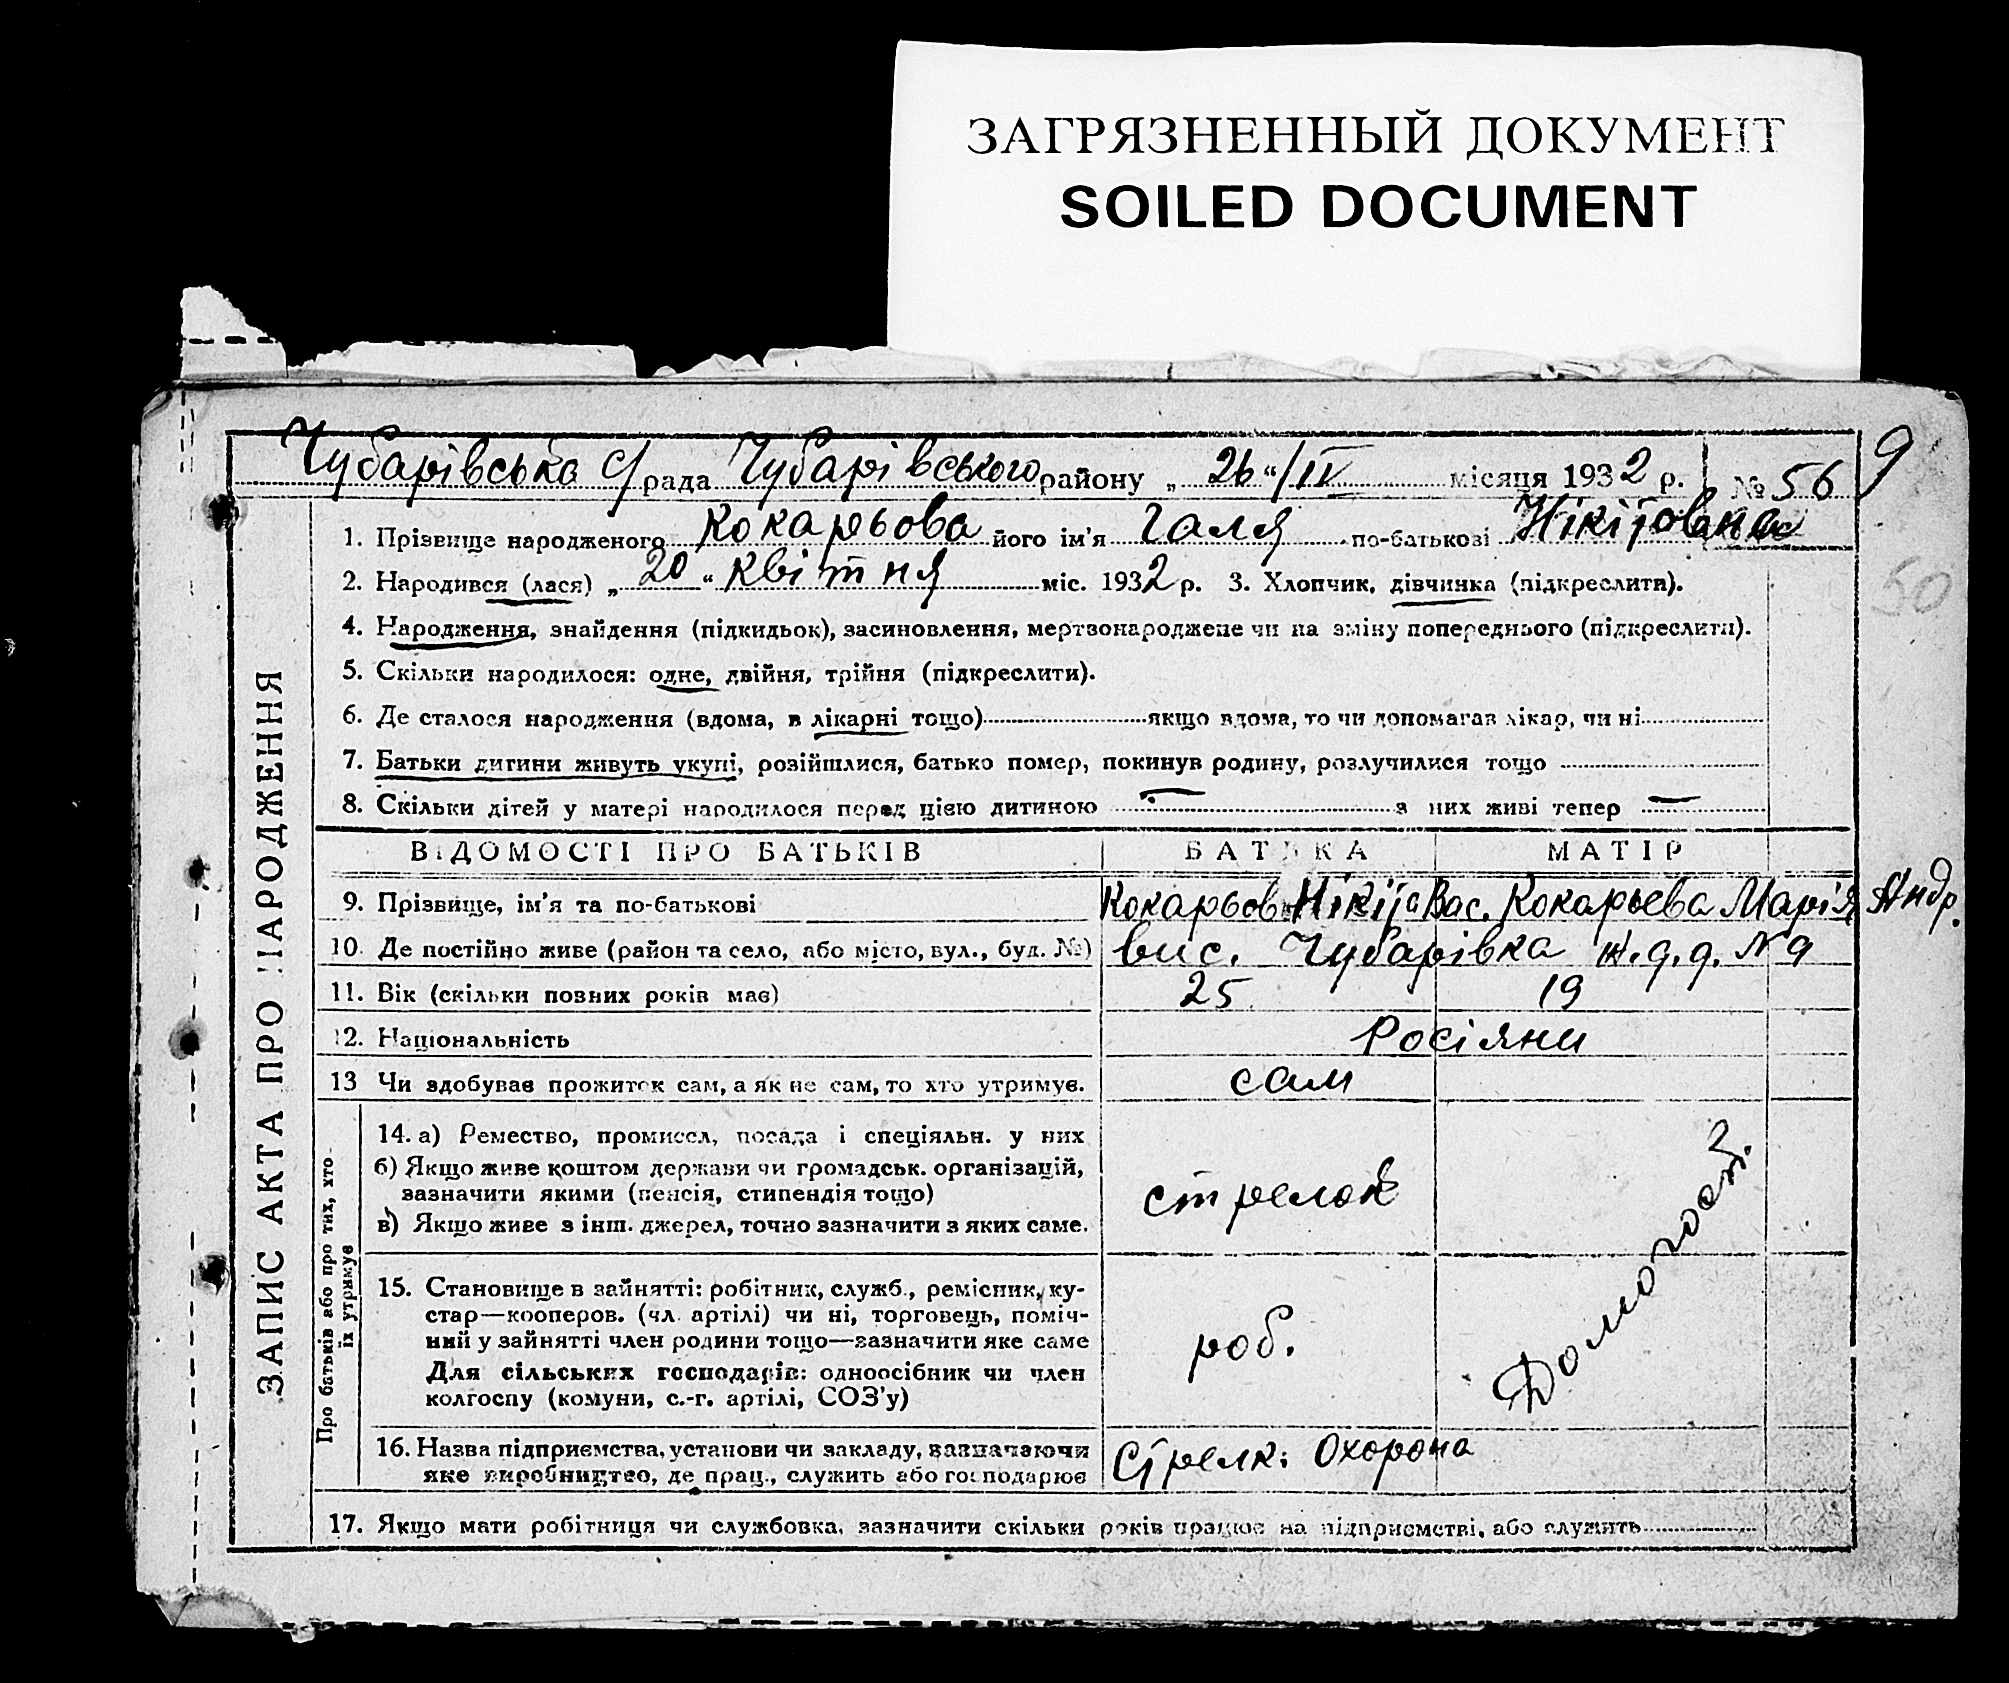 ЗАГРЯЗНЕННЫЙ ДОКУМЕНТ
SOILED DOCUMENT
Чубарівська с/рада Чубарівського району „26“/IV місяця 1932 р. № 56 9
1. Прізвище народженого Кокарьова його ім'я Галя по-батькові Нікіјовна
50
2. Народився (лася) „20“ квітня міс. 1932 р. 3. Хлопчик, дівчинка (підкреслити).
4. Народження, знайдення (підкидьок), засиновлення, мертвонароджене чи на зміну попереднього (підкреслити).
5. Скільки народилося: одне, двійня, трійня (підкреслити).
6. Де сталося народження (вдома, в лікарні тощо) якщо вдома, то чи допомагав лікар, чи ні
7. Батьки дитини живуть укупі, розійшлися, батько помер, покинув родину, розлучилися тощо
8. Скільки дітей у матері народилося перед цією дитиною — з них живі тепер —
ЗАПИС АКТА ПРО НАРОДЖЕННЯ
ВІДОМОСТІ ПРО БАТЬКІВ БАТЬКА МАТІР
9. Прізвище, ім'я та по-батькові Кокарьов Вас. Кокарьева Марія Андр.
10. Де постійно живе (район та село, або місто, вул., буд. №) вис. Чубарівка ж.д.д. № 9
11. Вік (скільки повних років має) 25 19
12. Національність Росіяни
13 Чи здобував прожиток сам, а як не сам, то хто утримує. сам
Про батьків або про тих, хто їх утримує
14. а) Ремество, промисел, посада і спеціяльн. у них
б) Якщо живе коштом держави чи громадськ. організацій,
зазначити якими (пенсія, стипендія тощо)
в) Якщо живе з інш. джерел, точно зазначити з яких саме.
стрелок
15. Становище в зайнятті: робітник, служб., ремісник, ку-
стар—кооперов. (чл. артілі) чи ні, торговець, поміч-
ний у зайнятті член родини тощо—зазначити яке саме
Для сільських господарів: одноосібник чи член
колгоспу (комуни, с.-г. артілі, СОЗ'у)
роб.
Домогосп.
16. Назва підприємства, установи чи закладу, зазначаючи
яке виробництво, де прац., служить або господарює
Стрелк: Охорона
17. Якщо мати робітниця чи службовка, зазначити скільки років працює на підприємстві, або служить